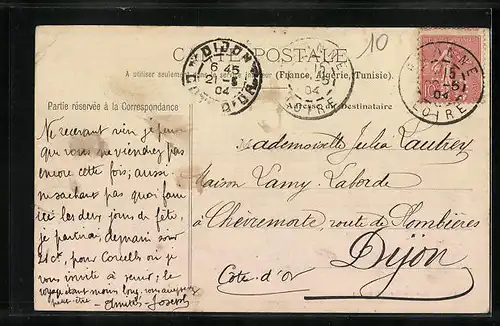 CARTE POSTALE
10
A utiliser seulement dans le service (France, Algérie, Tunisie).
Partie réservée à la Correspondance
Adresse du Destinataire
DIJON
6 45
21 -5
04
CÔTE D'OR
ROANNE
15
-5
04
LOIRE
ROANNE
15
-5
04
LOIRE
Ne recevant rien je pense
que vous ne viendrez pas
encore cette fois; aussi
ne sachant pas quoi faire
ici les deux jours de fête,
je partirai demain soir
pour Corcelles où je
vous invite à venir; le
voyage étant moins long, vous
peut-être
- Amitiés - Joseph
Mademoiselle Julia Lautrey
Maison Lamy-Laborde
à Chèvremorte, route de Plombières
Dijon
Côte-d'Or